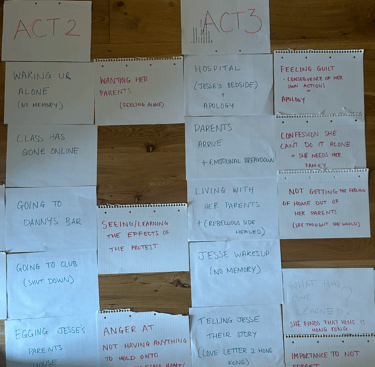 ACT 2
WAKING UP
ALONE
(NO MEMORY)
WANTING HER
PARENTS
(FEELING ALONE)
CLASS HAS
GONE ONLINE
GOING TO
DANNY'S BAR
SEEING/LEARNING
THE EFFECTS OF
THE PROTEST
GOING TO CLUB
(SHUT DOWN)
EGGING JESSE'S
PARENTS
HOUSE
ANGER AT
NOT HAVING ANYTHING
TO HOLD ONTO
ACT 3
HOSPITAL
(JESSE'S BEDSIDE)
+
APOLOGY
FEELING GUILT
- CONSEQUENCE OF HER
OWN ACTIONS
+
APOLOGY
PARENTS
ARRIVE
+ EMOTIONAL BREAKDOWN
CONFESSION SHE
CAN'T DO IT ALONE
+ SHE NEEDS HER
FAMILY
LIVING WITH
HER PARENTS
+ (REBELLIOUS SIDE
HEALED)
NOT GETTING THE FEELING
OF HOME OUT OF
HER PARENTS
(SHE THOUGHT SHE WOULD)
JESSE WAKES UP
(NO MEMORY)
WHAT
SHE FINDS THAT HOME IS
HONG KONG
TELLING JESSE
THEIR STORY
(LOVE LETTER 2 HONG
KONG)
IMPORTANCE TO NOT